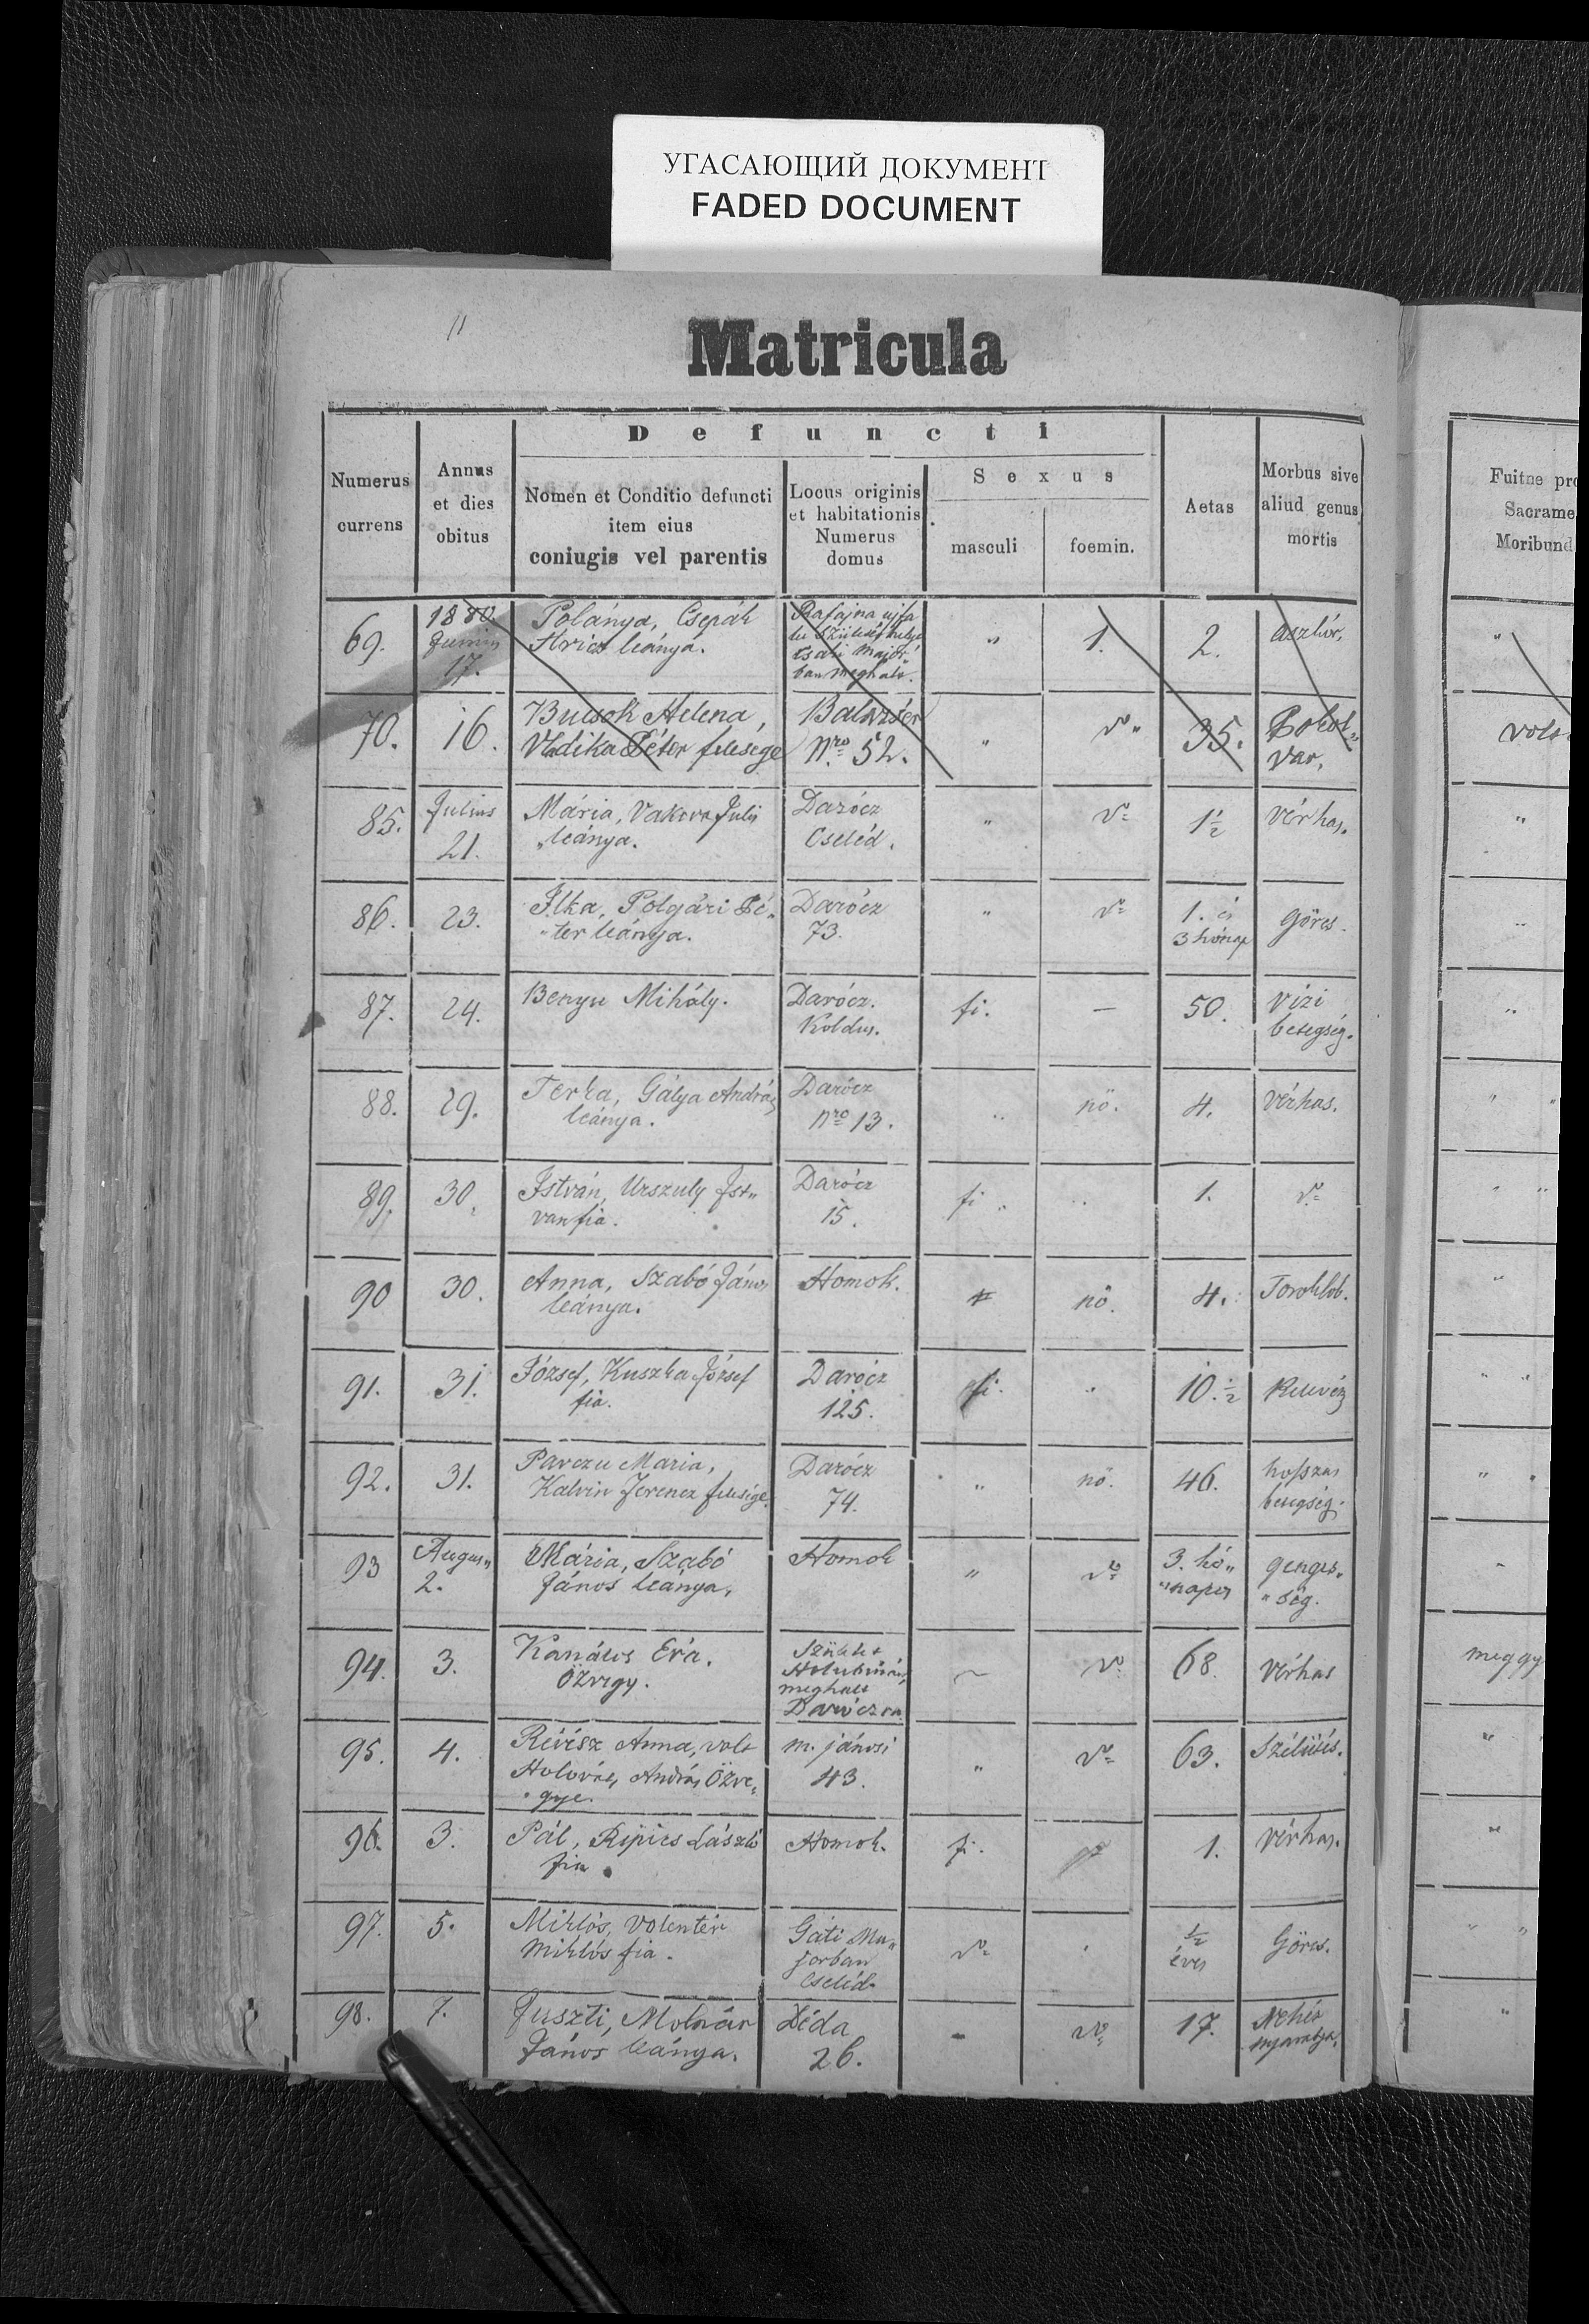 УГАСАЮЩИЙ ДОКУМЕНТ
FADED DOCUMENT
11
Matricula
Defuncti
Numerus
currens
Annus
et dies
obitus
Nomen et Conditio defuncti
item eius
coniugis vel parentis
Locus originis
et habitationis
Numerus
domus
Sexus
masculi
foemin.
Aetas
Morbus sive
aliud genus
mortis
Fuitne pro
Sacrame
Moribund
69.
1880.
Junius
17.
Polánya, Csepák
Hricz leánya.
Rafajna ujfa
lu
ban meghalt.
"
1.
2.
aszkór.
"
70.
16.
Bucsok Helena,
Vladika Péter felesége
Balazsér
Nro 52.
"
do "
35.
var.
volt
85.
Julius
21.
Mária, Vakova Julis
"leánya.
Darócz
Cseléd.
"
do
1 1/2
Vérhas.
"
86.
23.
Ilka, Polgári Pé„
"ter leánya.
Darócz
73.
"
do
1. és
3 hónap
Görcs.
"
87.
24.
Benyu Mihály.
Darócz.
Koldus.
fi.
—
50.
Vízi
betegség.
"
88.
29.
Terka, Gálya András
leánya.
Darócz
Nro 13.
"
nö.
4.
Vérhas.
"
89.
30.
István, Urszuly Ist„
ván fia.
Darócz
15.
fi "
"
1.
do
"
90
30.
Anna, Szabó János
leánya.
Homok.
nö.
4.
Toroklob.
"
91.
31.
József, Kuszka József
fia.
Darócz
125.
fi.
"
10. 1/2
Kelevéz
"
92.
31.
Parczu Maria,
Kalvin Ferencz felesége.
Darócz
74.
"
nö.
46.
hoszas
betegség.
"
93
Augus„
2.
Mária, Szabó
János leánya,
Homok
"
do
3. hó„
"napos
genges„
"ség.
"
94.
3.
Kanálos Éva.
Özvegy.
Született
meghalt
Daróczon.
do
68.
Vérhas
meggy
95.
4.
Révész Anna, volt
Holovács András Özve„
"gye.
m. jánosi
43.
"
do
63.
Szélütés.
"
96.
3.
Pál, Ripics László
fia.
Homok.
fi.
1.
Vérhas.
"
97.
5.
Miklós, Volentér
Miklós fia.
Gáti Ma„
jorban
Cseléd.
do
1/2
éves
Görcs.
"
98.
7.
Juszti, Molnár
János leánya.
Déda
26.
-
do
17.
Nehéz
nyavalya.
"